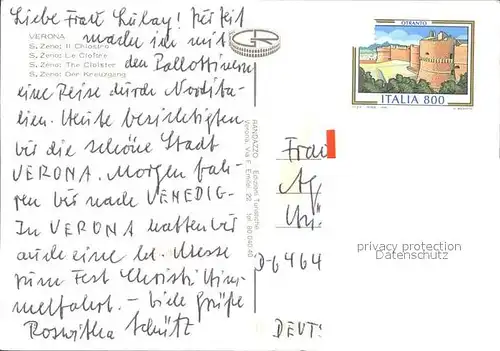 Liebe Frau Lulay! Zur Zeit
mache ich mit
den Pallottinern
eine Reise durch Nordita-
lien. Heute besichtigten
wir die schöne Stadt
VERONA. Morgen fah-
ren wir nach VENEDIG.
In VERONA hatten wir
auch eine hl. Messe
zum Fest Christi Him-
melfahrt. - Viele Grüße
Roswitha Schütz
VERONA
S. Zeno: Il Chiostro
S. Zeno: Le Cloître
S. Zeno: The Cloister
S. Zeno: Der Kreuzgang
RANDAZZO Edizioni Turistiche
Verona, Via F. Emilei 20 tel.
OTRANTO
ITALIA 800
Frau
D-6464
DEUTS
privacy protection
Datenschutz